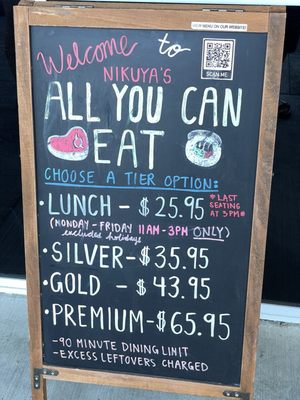 VIEW MENU ON OUR WEBSITE!
SCAN ME
Welcome to
NIKUYA'S
ALL YOU CAN
EAT
CHOOSE A TIER OPTION:
• LUNCH - $25.95
*LAST
SEATING
AT 3PM*
(MONDAY - FRIDAY 11AM-3PM ONLY)
excluded holidays
• SILVER - $35.95
• GOLD - $43.95
• PREMIUM - $65.95
- 90 MINUTE DINING LIMIT
- EXCESS LEFTOVERS CHARGED